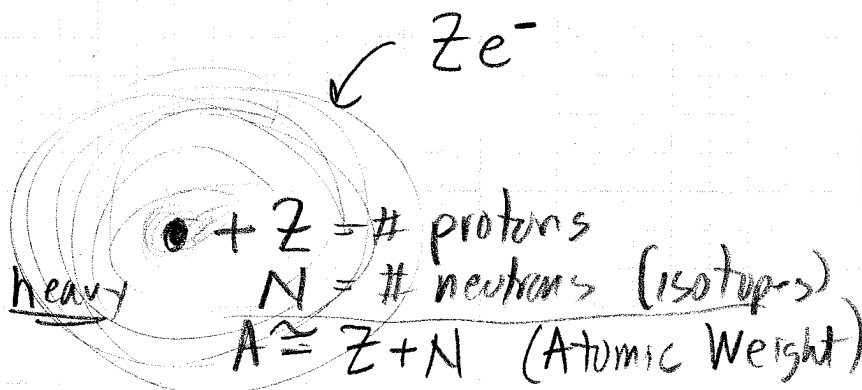 Z e⁻
+ Z = # protons
heavy N = # neutrons (isotopes)
A ≅ Z+N (Atomic Weight)